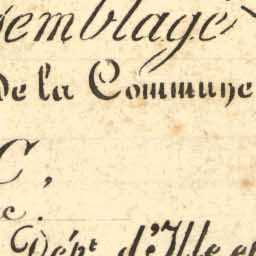 semblage
De la Commune
C,
c.
Dépt d'Ille et